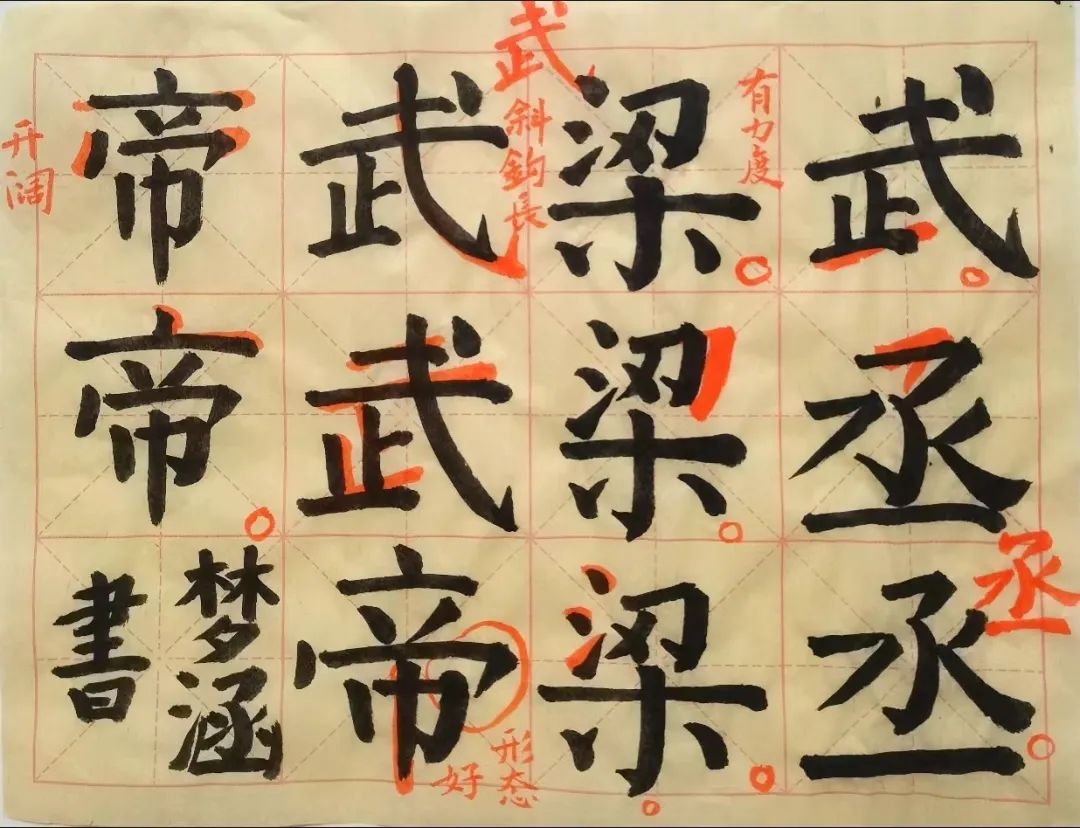 武丞丞
梁梁梁
武武帝
帝帝
梦涵
書
丞
有力度
武
斜鈎長
形态
好
开阔